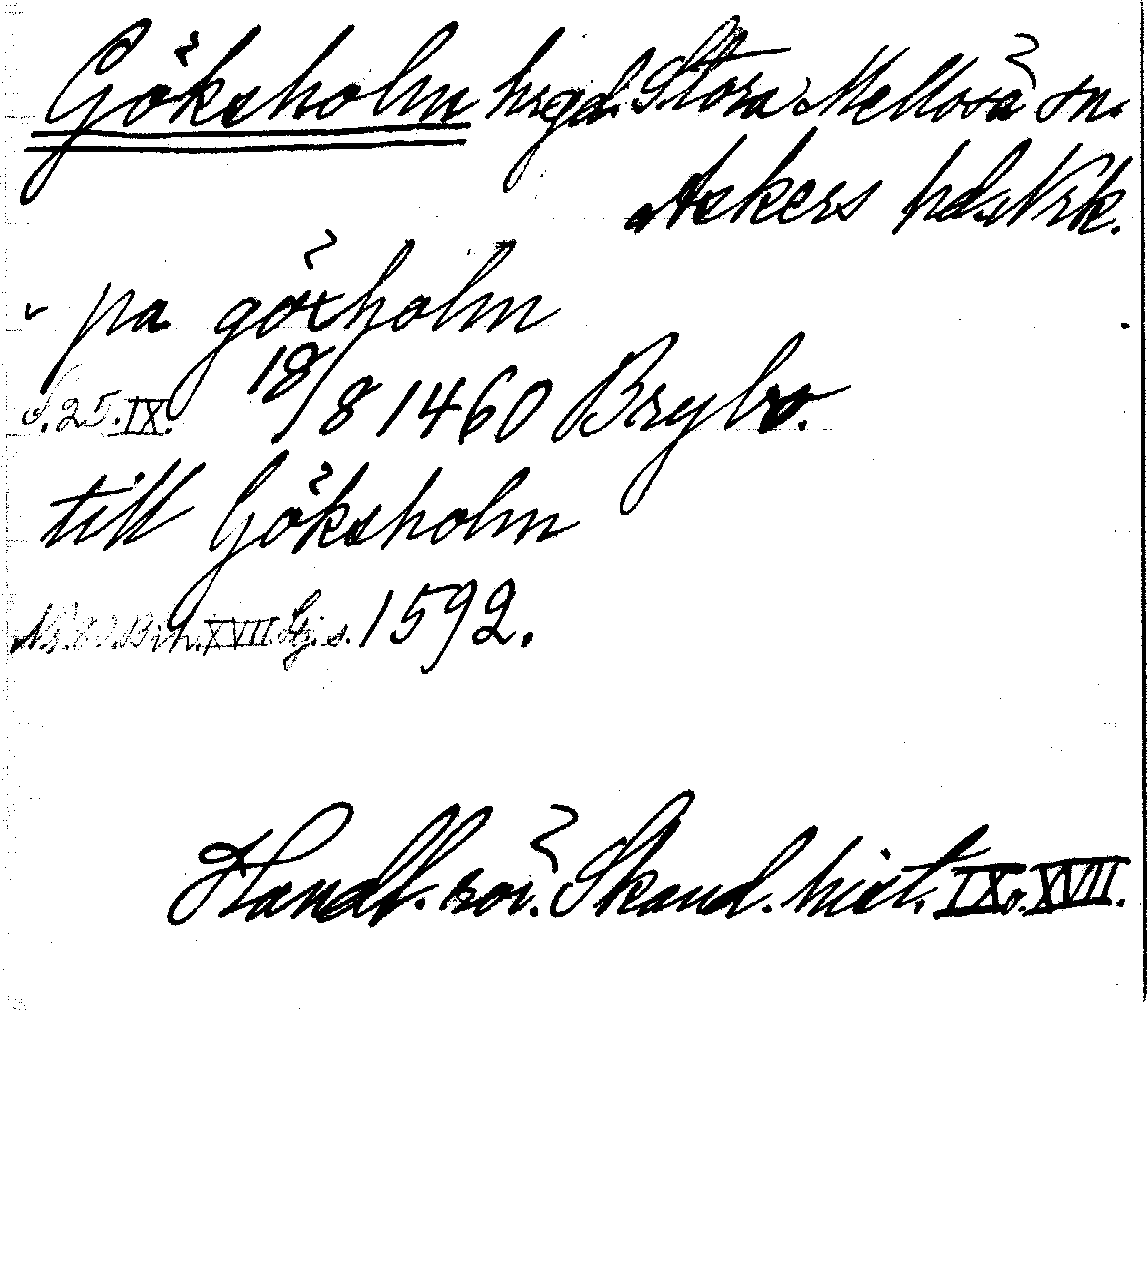 Göksholm hrgd. Stora Mellösa sn.
Askers hd. Nrk.
pa göxholm
s. 25. IX. 18/8 1460 Brybo.
till Göksholm
Bih. XVII. s. 1592.
Handl. rör. Skand. hist. IX o. XVII.